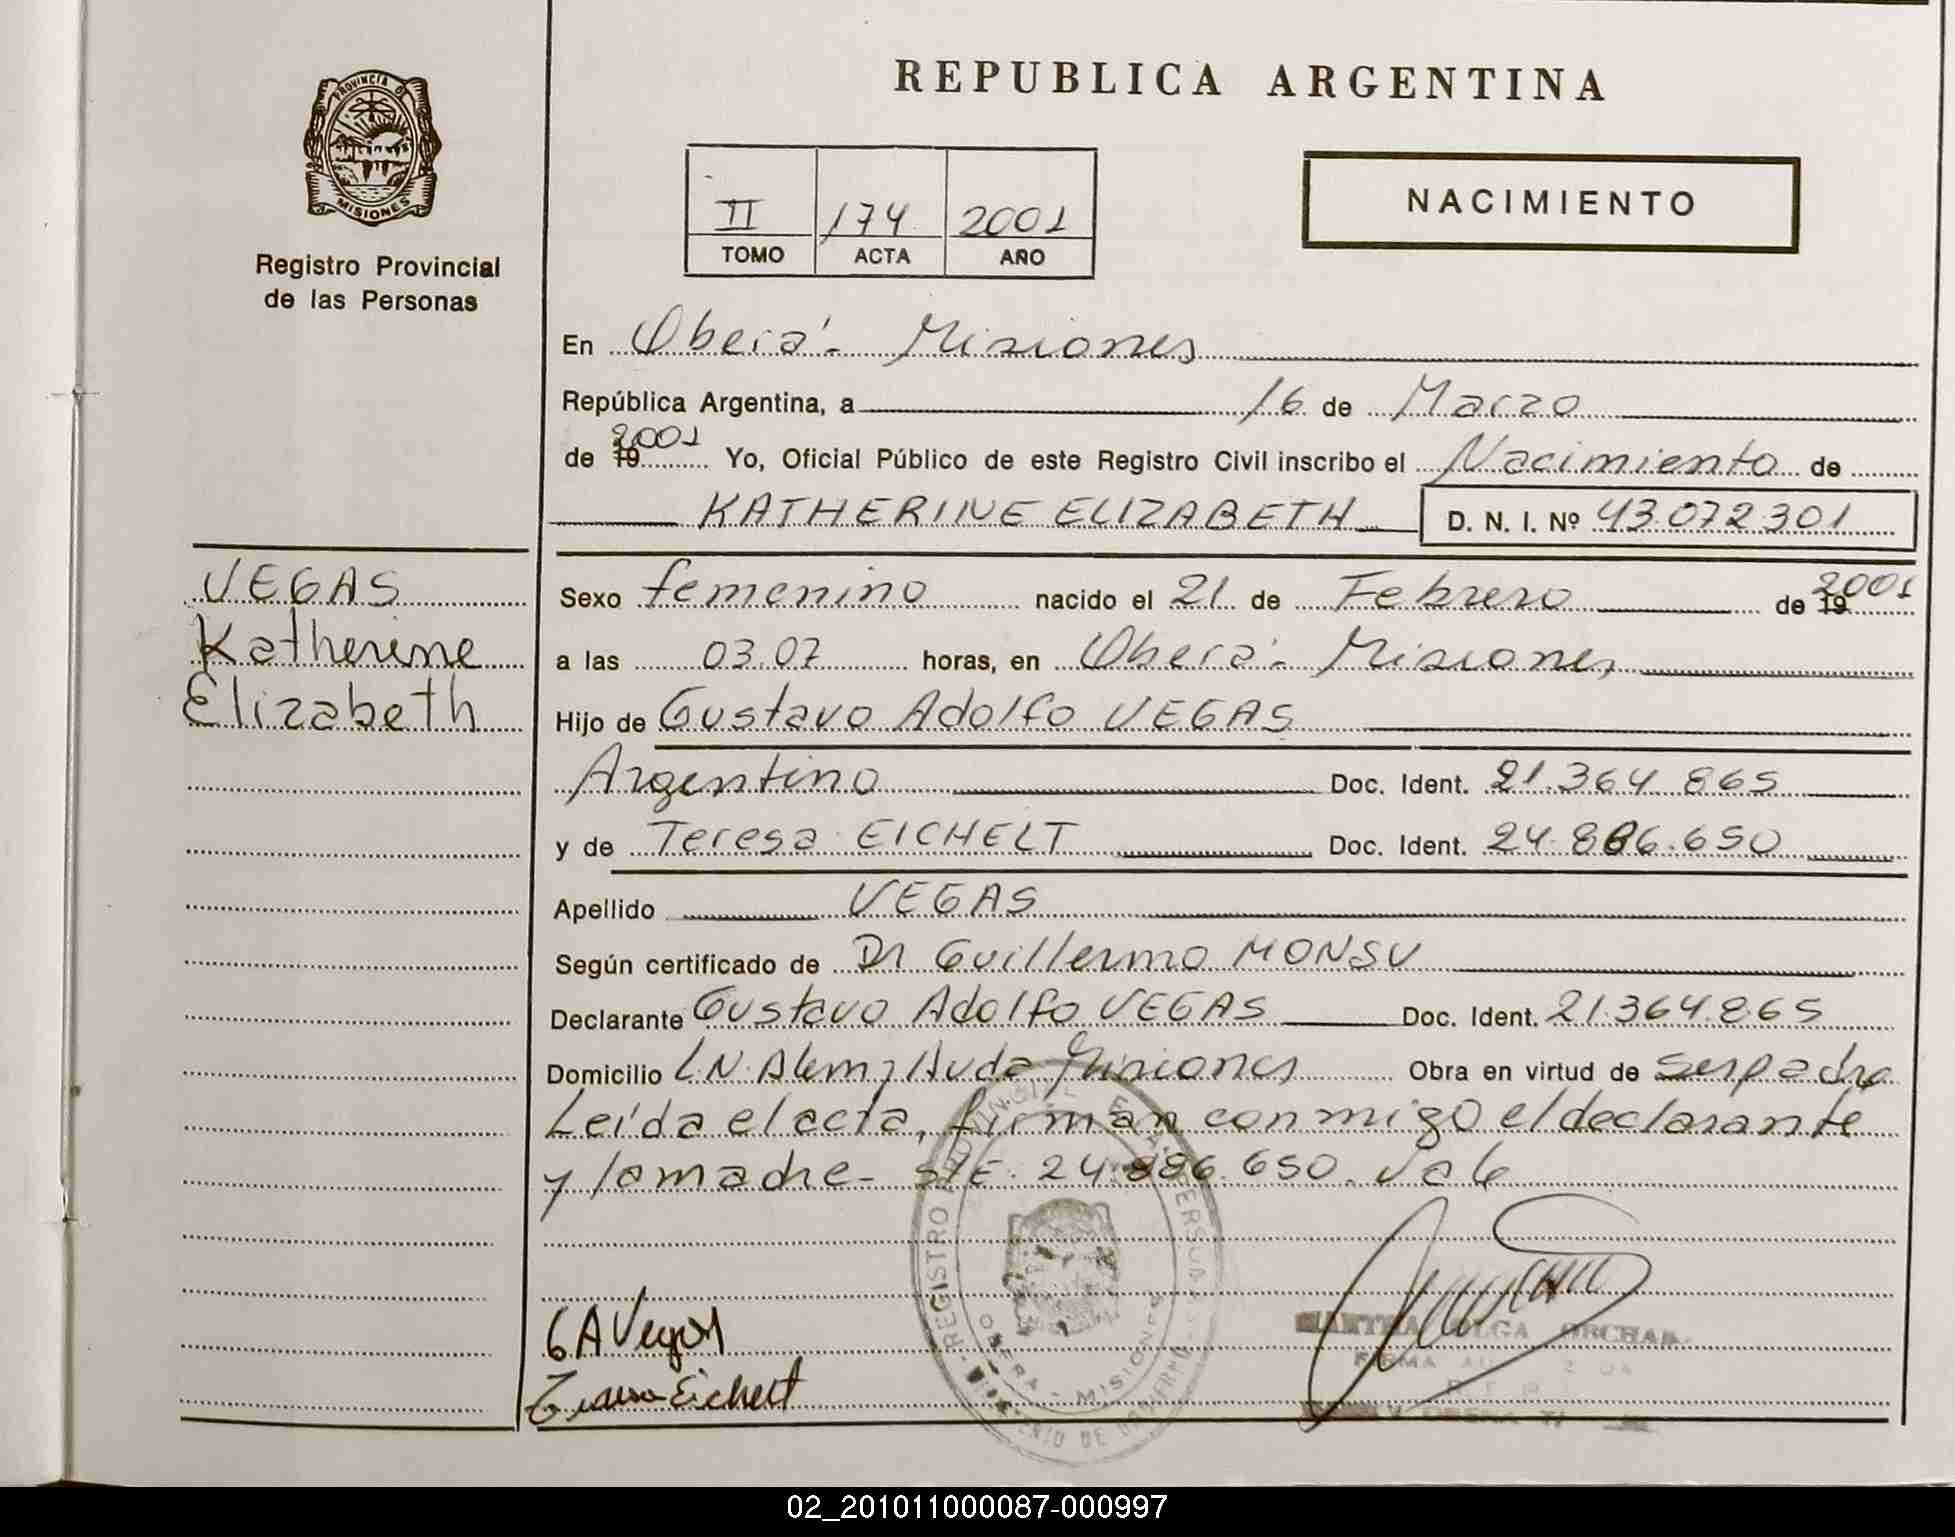 PROVINCIA DE
MISIONES
Registro Provincial
de las Personas
REPUBLICA ARGENTINA
II 174 2001
TOMO ACTA AÑO
NACIMIENTO
En Oberá - Misiones
República Argentina, a 16 de Marzo
de 19 2001 Yo, Oficial Público de este Registro Civil inscribo el Nacimiento de
KATHERINE ELIZABETH D. N. I. Nº 43.072.301
VEGAS
Katherine
Elizabeth
Sexo femenino nacido el 21 de Febrero de 19 2001
a las 03.07 horas, en Oberá - Misiones
Hijo de Gustavo Adolfo VEGAS
Argentino Doc. Ident. 21.364.865
y de Teresa EICHELT Doc. Ident. 24.886.650
Apellido VEGAS
Según certificado de Dr Guillermo MONSU
Declarante Gustavo Adolfo VEGAS Doc. Ident. 21.364.865
Domicilio L.N. Alem, Misiones Obra en virtud de ser padre
Leída el acta, firman conmigo el declarante
y la madre - S/E: 24.886.650. Vale
REGISTRO PROVINCIAL DE LAS PERSONAS
OBERA - MISIONES
MINISTERIO DE GOBIERNO
G A Vegas
Teresa Eichelt
MARTHA OLGA
FIRMA
02_201011000087-000997